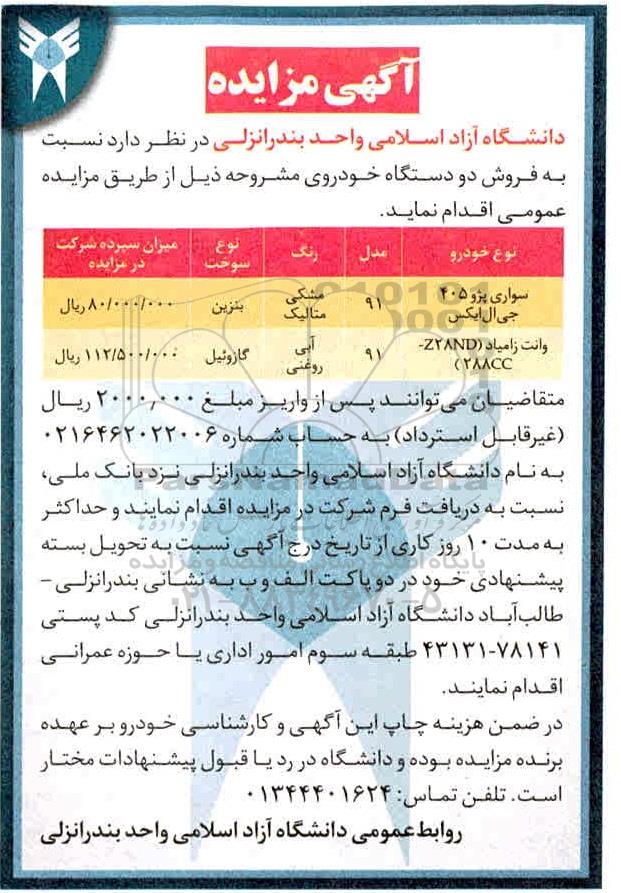 آگهی مزایده
دانشگاه آزاد اسلامی واحد بندرانزلی در نظر دارد نسبت
به فروش دو دستگاه خودروی مشروحه ذیل از طریق مزایده
عمومی اقدام نماید.
نوع خودرو مدل رنگ نوع سوخت میزان سپرده شرکت در مزایده
سواری پژو ۴۰۵ جی‌ال‌ایکس ۹۱ مشکی متالیک بنزین ۸۰/۰۰۰/۰۰۰ ریال
وانت زامیاد (Z۲۸ND-۲۸۸CC) ۹۱ آبی روغنی گازوئیل ۱۱۲/۵۰۰/۰۰۰ ریال
متقاضیان می‌توانند پس از واریز مبلغ ۲۰۰۰,۰۰۰ ریال
(غیرقابل استرداد) به حساب شماره ۰۲۱۶۴۶۲۰۲۲۰۰۶
به نام دانشگاه آزاد اسلامی واحد بندرانزلی نزد بانک ملی،
نسبت به دریافت فرم شرکت در مزایده اقدام نمایند و حداکثر
به مدت ۱۰ روز کاری از تاریخ درج آگهی نسبت به تحویل بسته
پیشنهادی خود در دو پاکت الف و ب به نشانی بندرانزلی -
طالب‌آباد دانشگاه آزاد اسلامی واحد بندرانزلی کد پستی
۴۳۱۳۱-۷۸۱۴۱ طبقه سوم امور اداری یا حوزه عمرانی
اقدام نمایند.
در ضمن هزینه چاپ این آگهی و کارشناسی خودرو بر عهده
برنده مزایده بوده و دانشگاه در رد یا قبول پیشنهادات مختار
است. تلفن تماس: ۰۱۳۴۴۴۰۱۶۲۴
روابط‌عمومی دانشگاه آزاد اسلامی واحد بندرانزلی